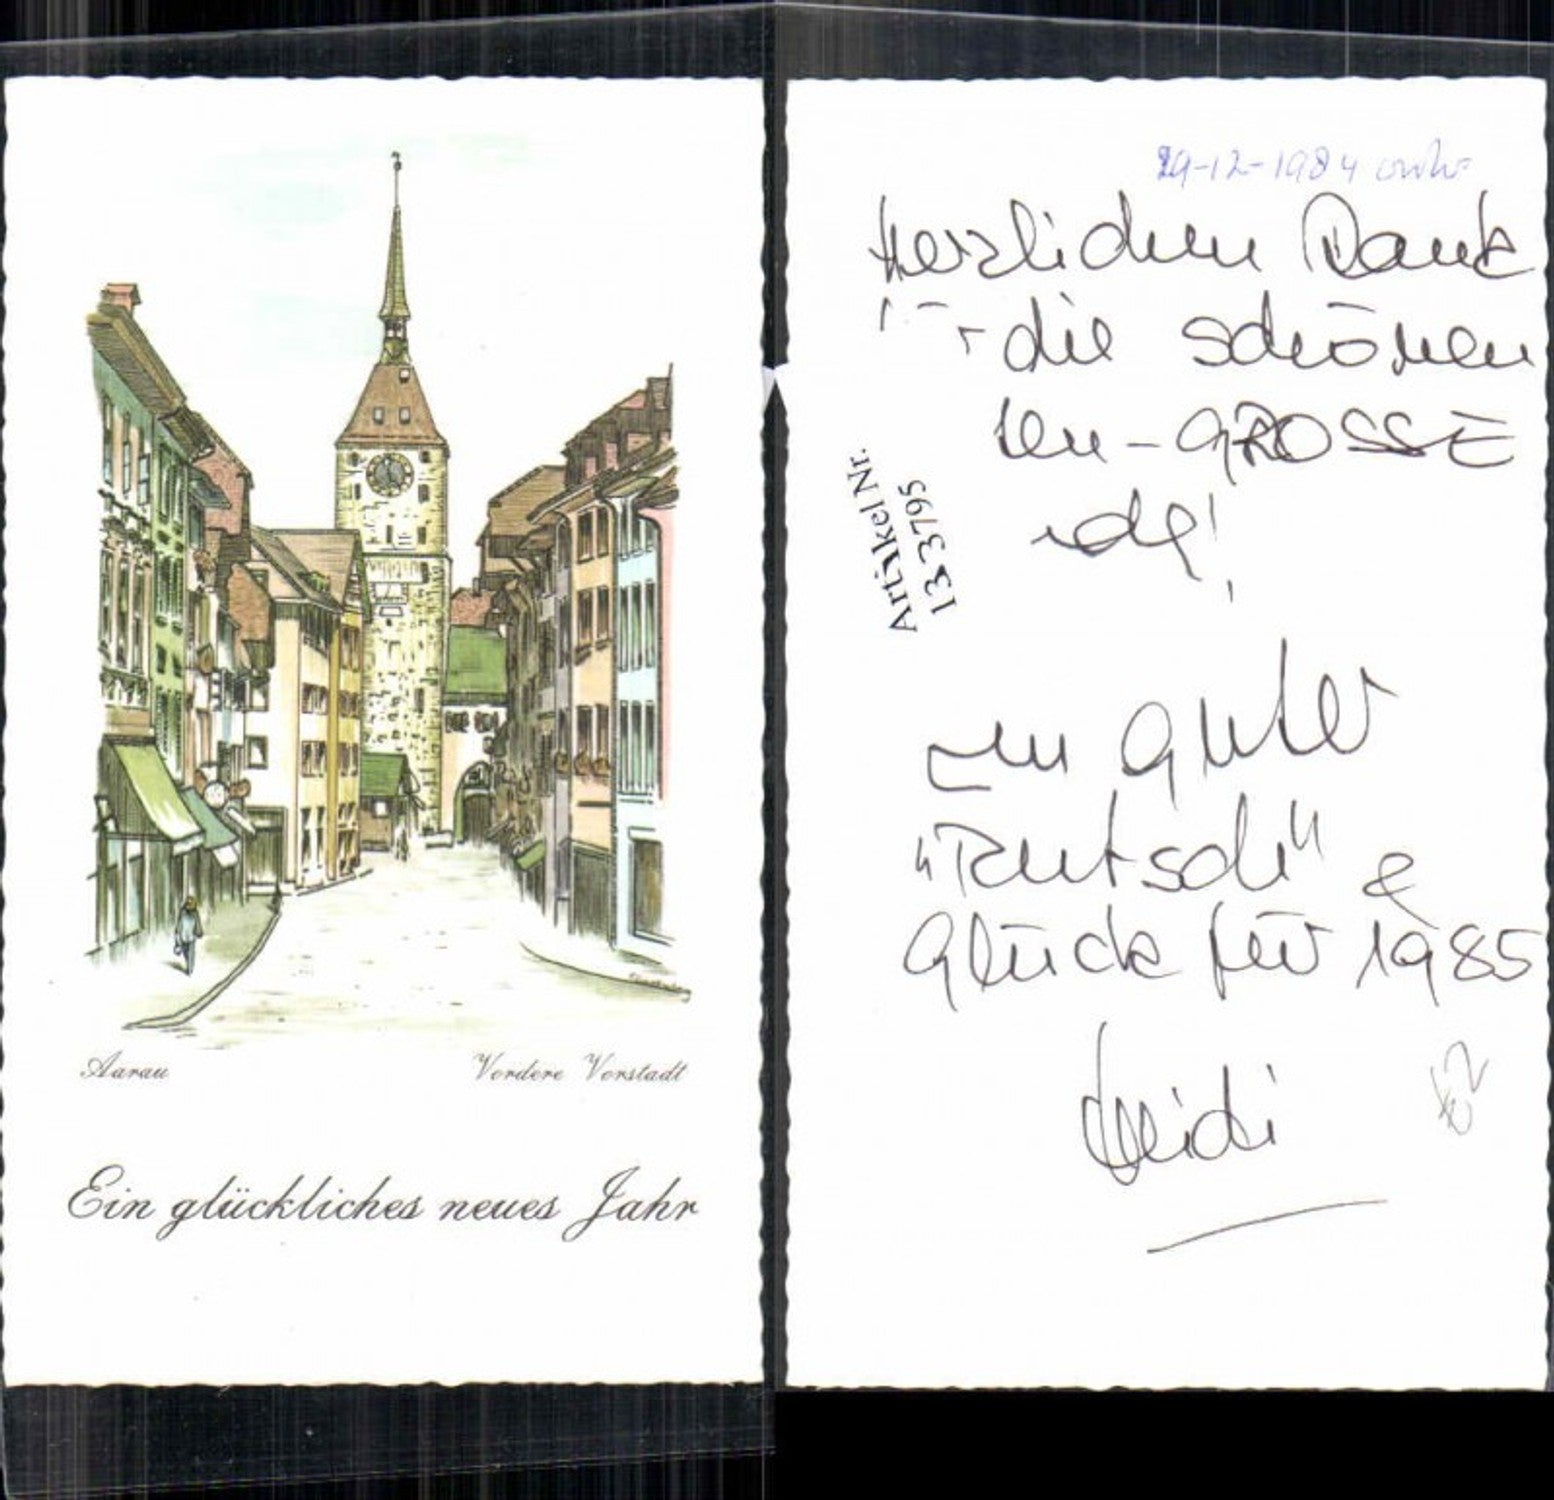 Aarau
Vordere Vorstadt
Ein glückliches neues Jahr
29-12-1984
Herzlichen Dank
die schönen
GROSSE
Artikel Nr.
133795
en guter
"Rutsch" &
Glück für 1985
Heidi